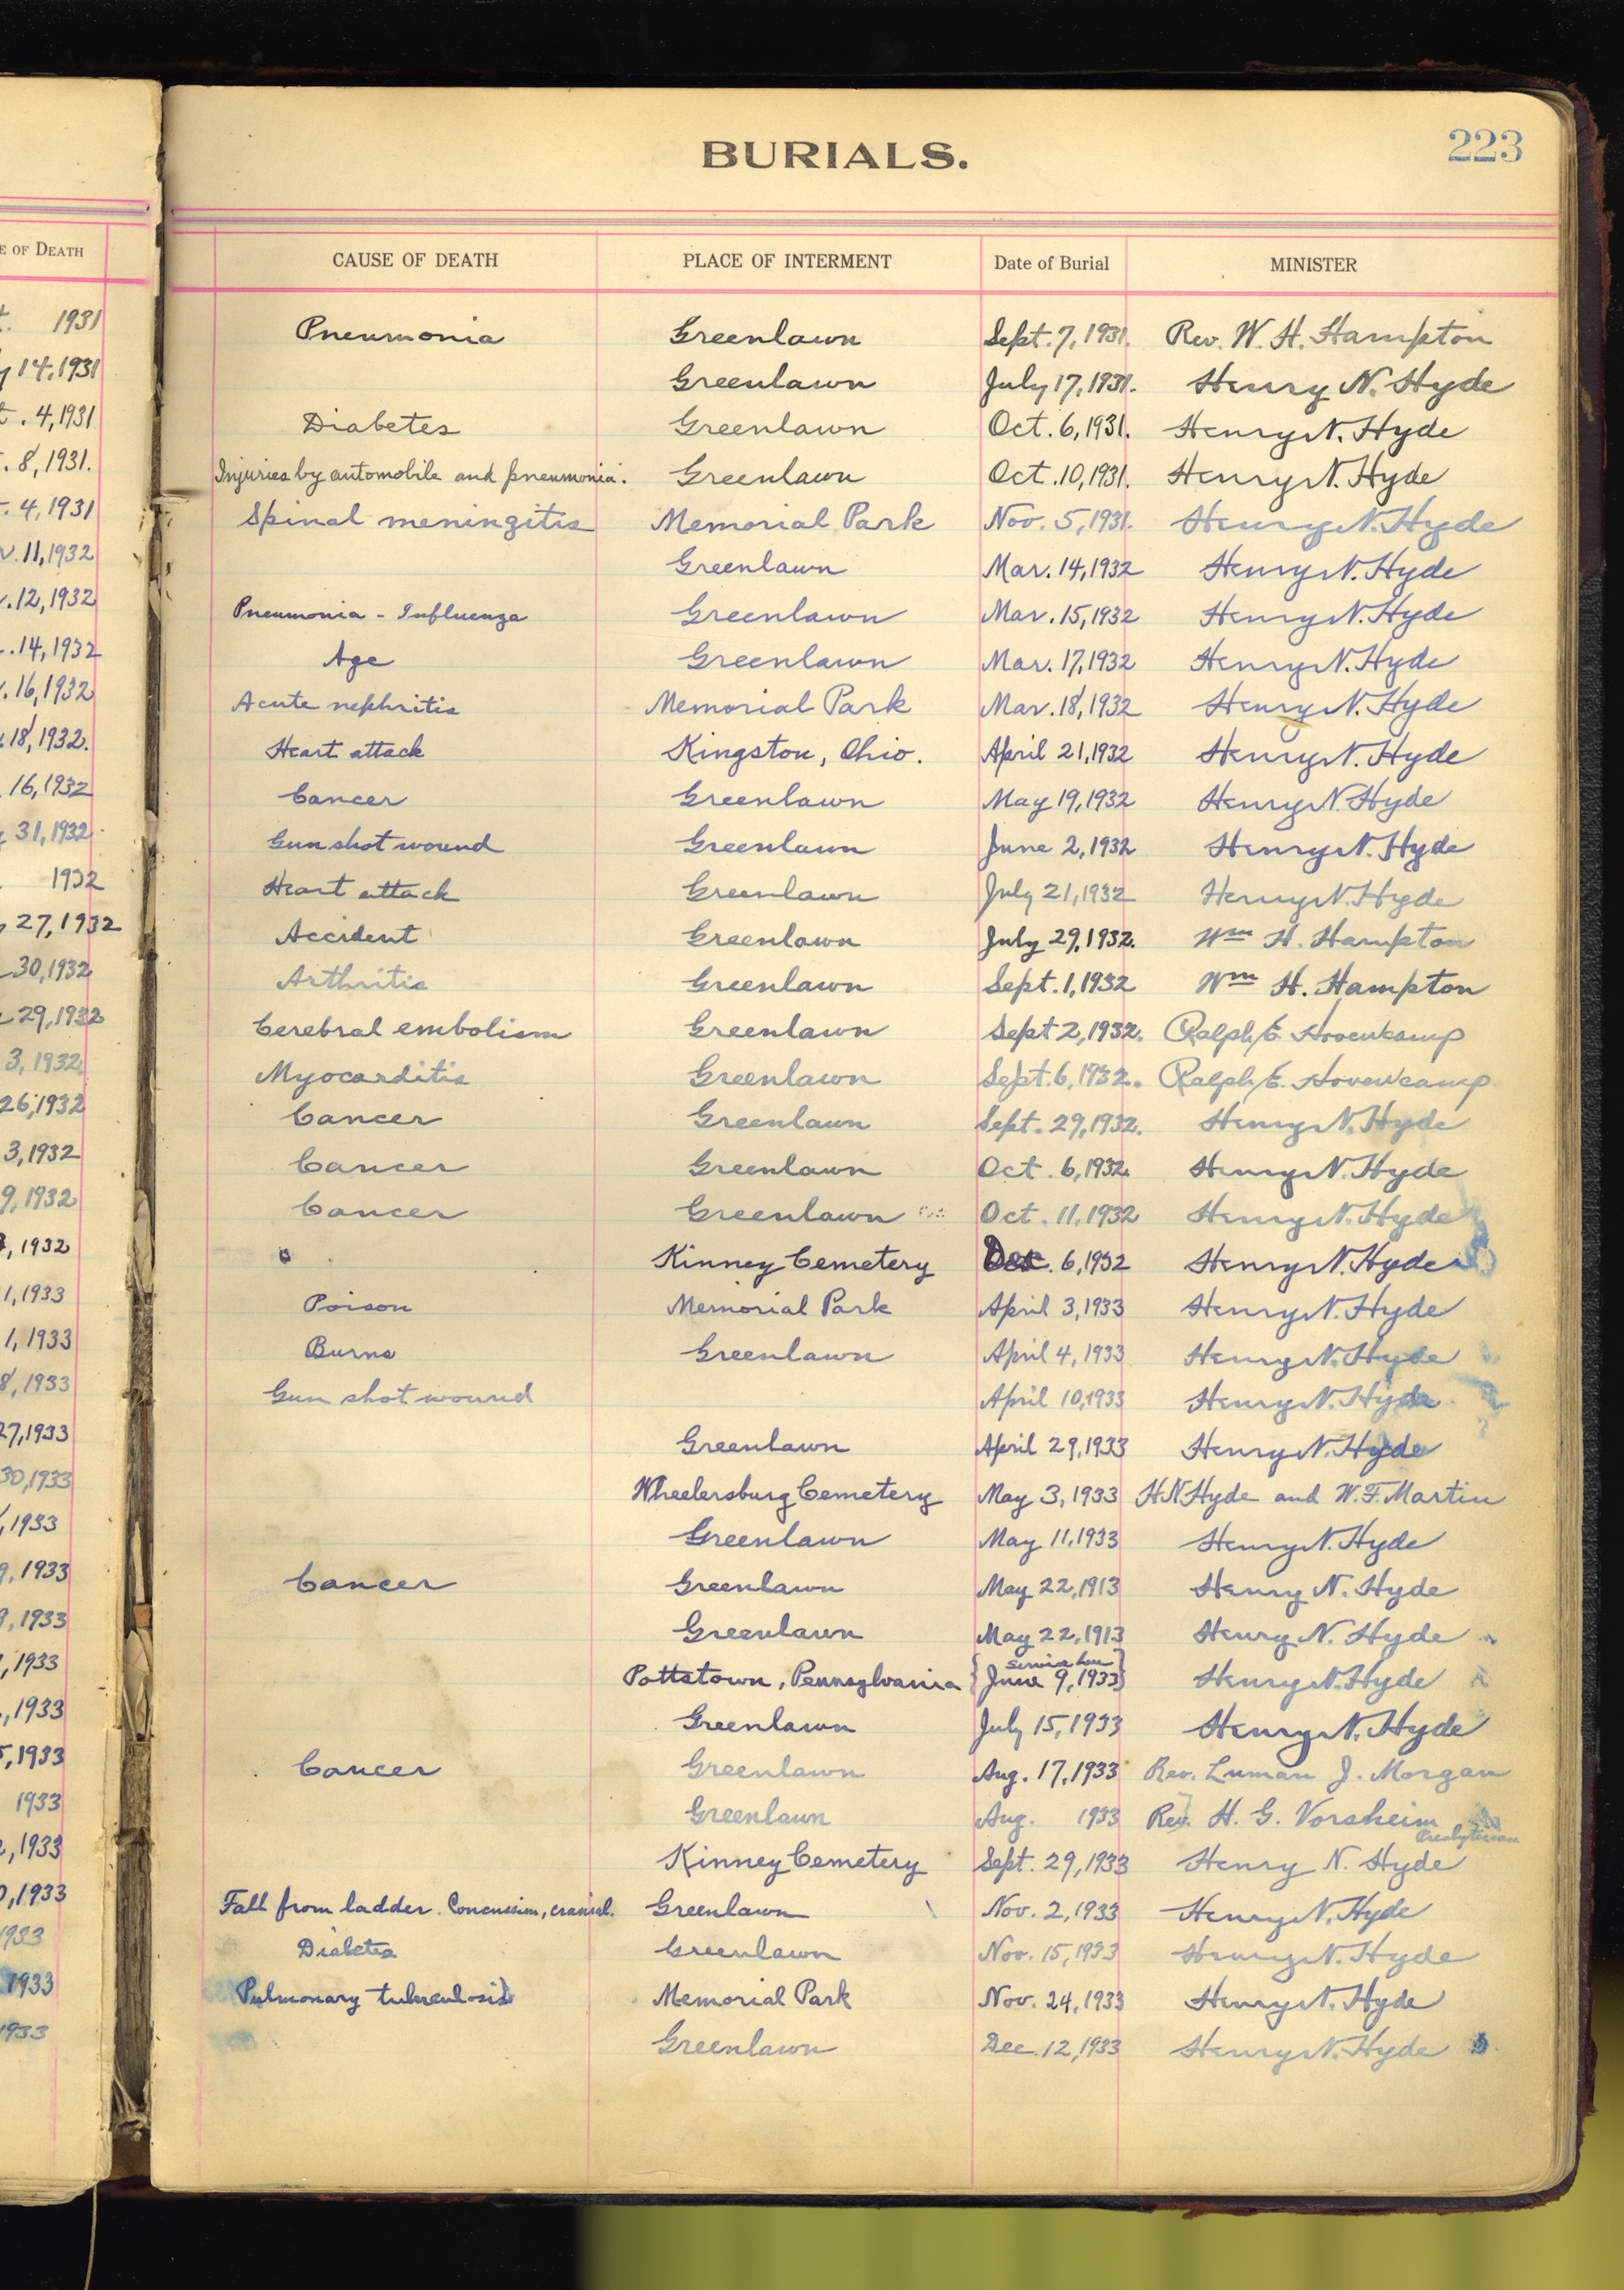 BURIALS.
223
E OF DEATH CAUSE OF DEATH PLACE OF INTERMENT Date of Burial MINISTER
t. 1931 Pneumonia Greenlawn Sept. 7, 1931. Rev. W. H. Hampton
y 14, 1931 Greenlawn July 17, 1931. Henry N. Hyde
t. 4, 1931 Diabetes Greenlawn Oct. 6, 1931. Henry N. Hyde
. 8, 1931. Injuries by automobile and pneumonia. Greenlawn Oct. 10, 1931. Henry N. Hyde
. 4, 1931 Spinal meningitis Memorial Park Nov. 5, 1931. Henry N. Hyde
. 11, 1932 Greenlawn Mar. 14, 1932 Henry N. Hyde
. 12, 1932 Pneumonia - Influenza Greenlawn Mar. 15, 1932 Henry N. Hyde
. 14, 1932 Age Greenlawn Mar. 17, 1932 Henry N. Hyde
. 16, 1932 Acute nephritis Memorial Park Mar. 18, 1932 Henry N. Hyde
18, 1932. Heart attack Kingston, Ohio. April 21, 1932 Henry N. Hyde
16, 1932 Cancer Greenlawn May 19, 1932 Henry N. Hyde
y 31, 1932 Gun shot wound Greenlawn June 2, 1932 Henry N. Hyde
1932 Heart attack Greenlawn July 21, 1932 Henry N. Hyde
27, 1932 Accident Greenlawn July 29, 1932. Wm H. Hampton
30, 1932 Arthritis Greenlawn Sept. 1, 1932 Wm H. Hampton
29, 1932 Cerebral embolism Greenlawn Sept 2, 1932. Ralph E. Hovenkamp
3, 1932 Myocarditis Greenlawn Sept. 6, 1932. Ralph E. Hovenkamp
26, 1932 Cancer Greenlawn Sept. 29, 1932. Henry N. Hyde
3, 1932 Cancer Greenlawn Oct. 6, 1932. Henry N. Hyde
9, 1932 Cancer Greenlawn Oct. 11, 1932 Henry N. Hyde
, 1932 Kinney Cemetery Dec. 6, 1932 Henry N. Hyde
1, 1933 Poison Memorial Park April 3, 1933 Henry N. Hyde
1, 1933 Burns Greenlawn April 4, 1933 Henry N. Hyde
8, 1933 Gun shot wound April 10, 1933 Henry N. Hyde
27, 1933 Greenlawn April 29, 1933 Henry N. Hyde
30, 1933 Wheelersburg Cemetery May 3, 1933 H N Hyde and W. F. Martin
, 1933 Greenlawn May 11, 1933 Henry N. Hyde
9, 1933 Cancer Greenlawn May 22, 1913 Henry N. Hyde
9, 1933 Greenlawn May 22, 1913 Henry N. Hyde
service
, 1933 Pottstown, Pennsylvania {June 9, 1933} Henry N. Hyde
, 1933 Greenlawn July 15, 1933 Henry N. Hyde
5, 1933 Cancer Greenlawn Aug. 17, 1933 Rev. Luman J. Morgan
1933 Greenlawn Aug. 1933 Rev. H. G. Vorsheim
Presbyterian
, 1933 Kinney Cemetery Sept. 29, 1933 Henry N. Hyde
0, 1933 Fall from ladder. Concussion, cranial. Greenlawn Nov. 2, 1933 Henry N. Hyde
1933 Diabetes Greenlawn Nov. 15, 1933 Henry N. Hyde
1933 Pulmonary tuberculosis Memorial Park Nov. 24, 1933 Henry N. Hyde
1933 Greenlawn Dec. 12, 1933 Henry N. Hyde